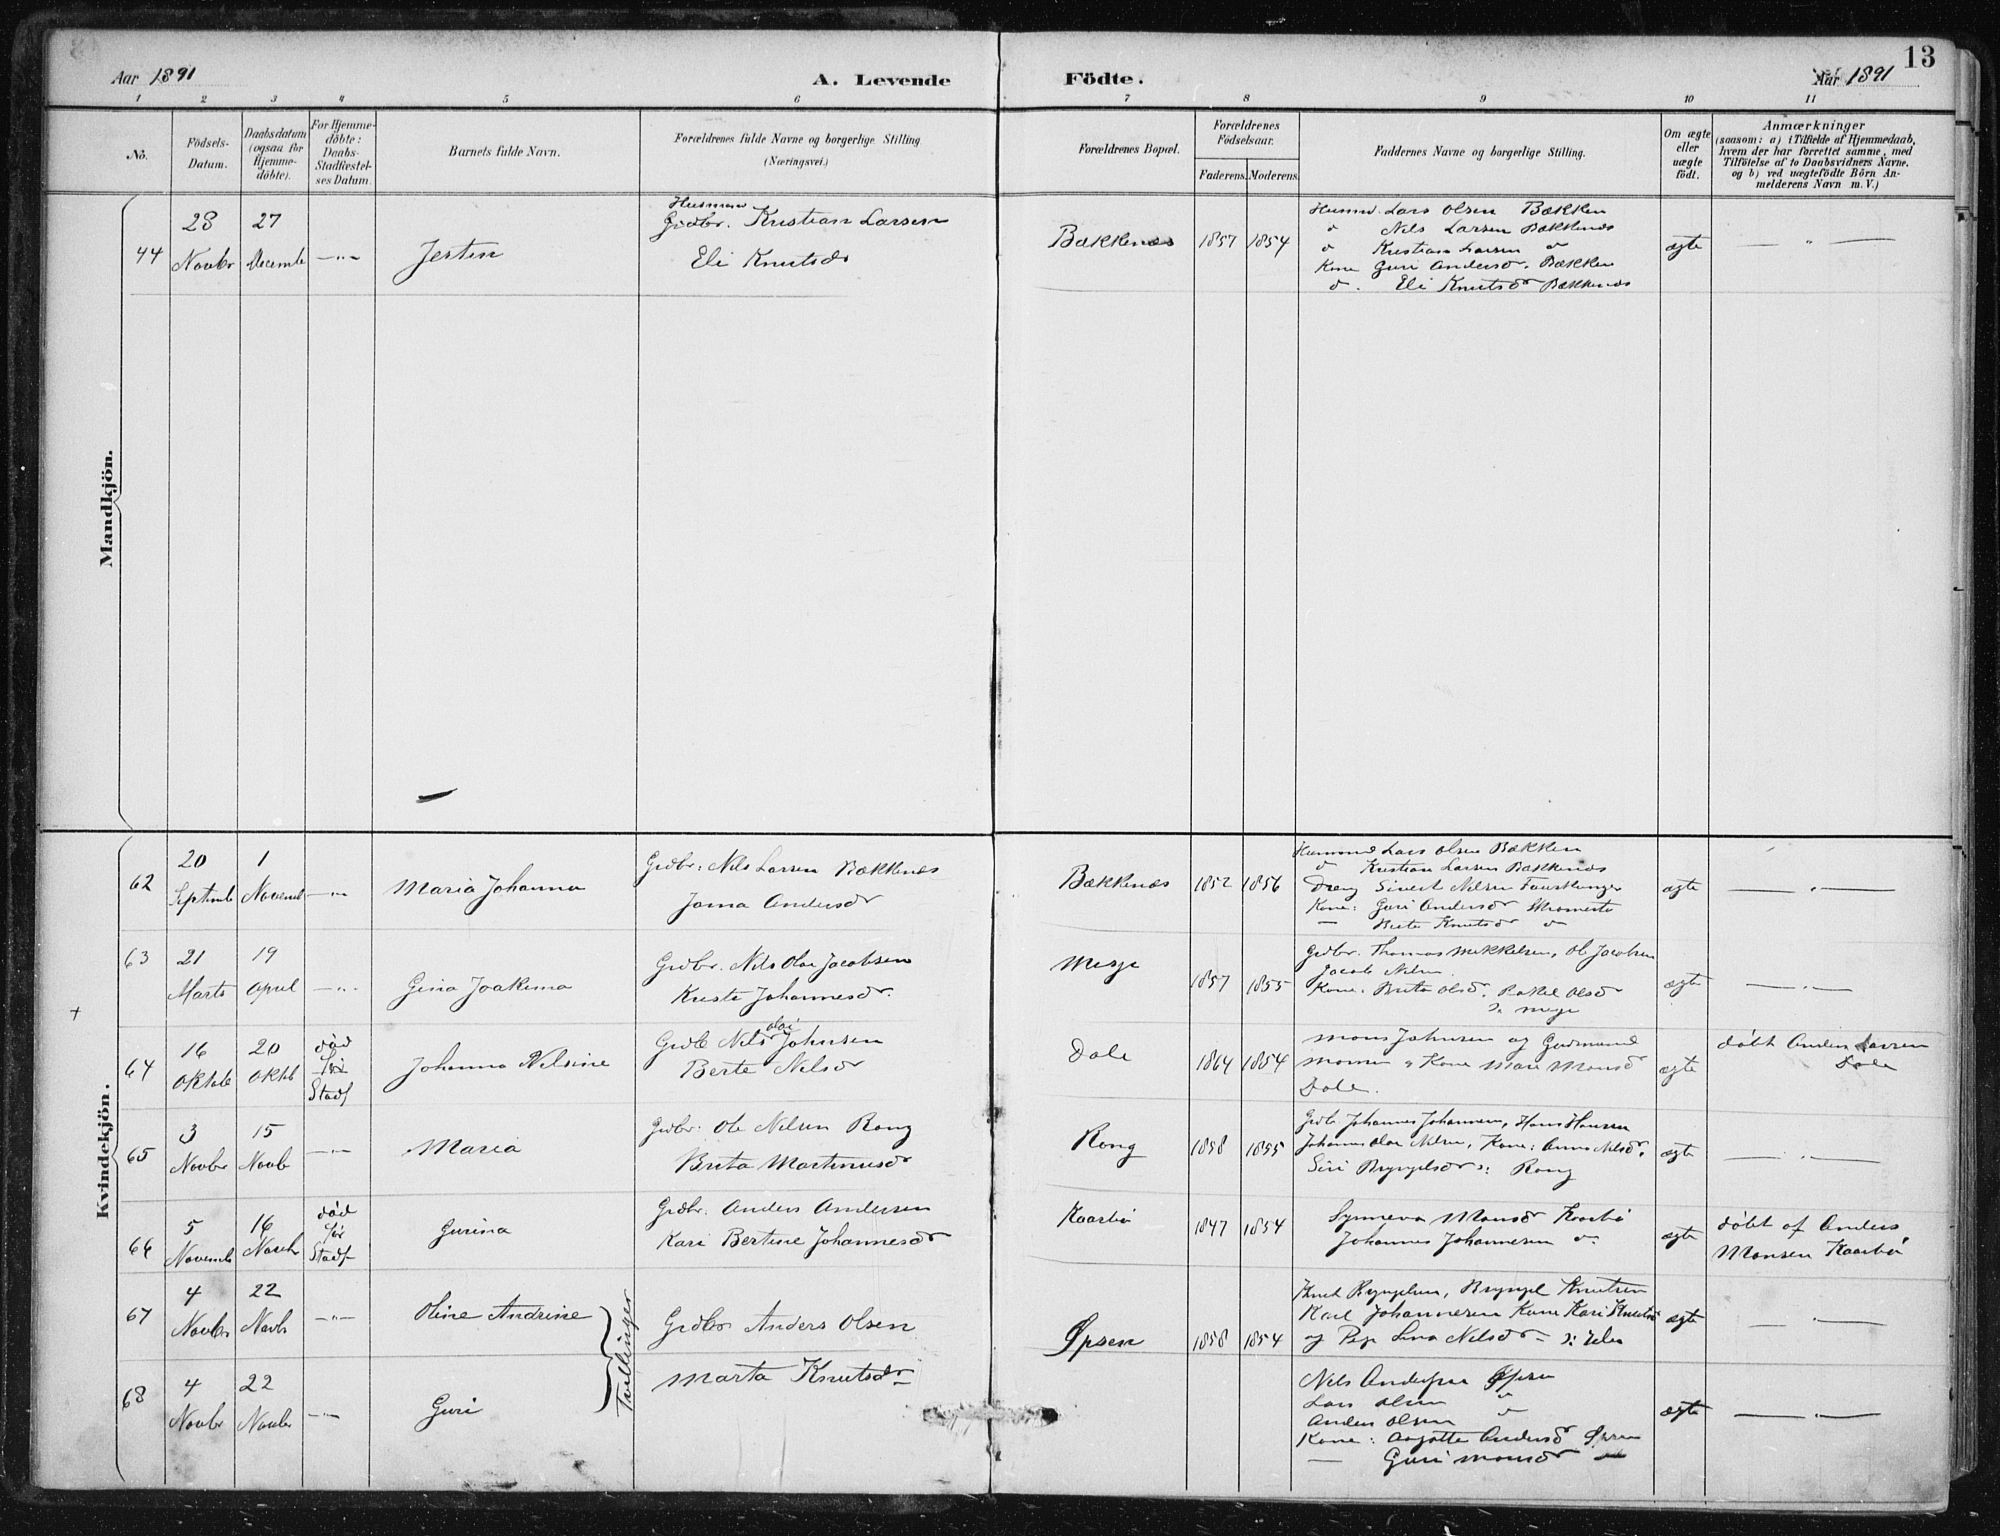 13
Aar 1891
A. Levende
Födte.
Aar 1891
1 2 3 4 5 6 7 8 9 10 11
No.
Födsels-
Datum.
Daabsdatum
(ogsaa for
Hjemme-
döbte).
For Hjemme-
döbte:
Daabs-
Stadfæstel-
ses Datum.
Barnets fulde Navn.
Forældrenes fulde Navne og borgerlige Stilling
(Næringsvei.)
Forældrenes Bopæl.
Forældrenes
Födselsaar.
Faderens. Moderens.
Faddernes Navne og borgerlige Stilling.
Om ægte
eller
uægte
födt.
Anmærkninger
(saasom: a) i Tilfælde af Hjemmedaab,
hvem der har forrettet samme, med
Tilföielse af to Daabsvidners Navne.
og b) ved uægtefödte Börn An-
melderens Navn m. V.)
Mandkjön.
44
28
Novbr
27
Decembe
—"—
Jesten
Husmand
Grdbr. Kristian Larsen
Eli Knutsdr
Bækkenæs
1857 1854
Husmd. Lars Olsen Bækken
do Nils Larsen Bækkenæs
do Kristian Larsen do
Kone Guri Andersdr. Bækken
do. Eli Knutsdr Bækkenæs
ægte
— " —
Kvindekjön.
62
20
Septembe
1
Novemb
—"—
Maria Johanna
Grdbr. Nils Larsen Bækkenæs
Joma Andersdr
Bækkenæs
1852 1856
Husmand Lars Olsen Bækken
do Kristian Larsen Bækkenæs
Dreng Sivert Nilsen
Kone: Guri Andersdr
— Berte Knutsdr do
ægte
— " —
63
21
Marts
19
April
—"—
Gina Joakima
Grdbr. Nils Olai Jacobsen
Kriste Johannesdr.
Meje
1857 1855
Grdbr. Thomas Mikkelsen, Ole Jacobsen
Jacob Nilsen
Kone: Brita Olsdr. Rakel Olsdr
Meje
ægte
— " —
+
64
16
Oktob
20
Oktb
död
för
Stadf
Johanna Nilsine
Grdb Nils Olai Johnsen
Berte Nilsdr
Dale
1864 1854
Mons Johnsen og Gudmund
Monsen, Kone Mari Monsdr
Dale.
ægte
döbt Anders Larsen
Dale
65
3
Novbr
15
Novb
—"—
Maria
Grdbr: Ole Nilsen Rong
Brita Martinusdr
Rong
1858 1855
Grdb Johannes Johannesen, Hans Hansen
Johannes Olai Nilsen, Kone: Anna Nilsdr,
Siri Bryngelsdr: Rong
ægte
— " —
66
5
Novemb
16
Novbr
död
för
Stadf
Gurina
Grdbr: Anders Andersen
Kari Bertine Johannesdr
Kaarbö
1847 1854
Synneva Monsdr Kaarbö
Johannes Johannesen do
ægte
döbt af Anders
Monsen Kaarbö
67
4
Novbr
22
Novb
—"—
Oline Andrine
Tvillinger
Grdbr Anders Olsen
Marta Knutsdr
Öpsen
1858 1854
Knut Bryngelsen, Bryngel Knutsen
Karl Johannesen Kone Kari Knutsdr
og Pige Lina Nilsdr
ægte
68
4
Novbr
22
Novbr
—"—
Guri
Nils Andersen Öpsen
Lars Olsen "
Anders Olsen "
Kone: Aagotte Andersdr Öpsen
— Guri Monsdr
ægte
— " —